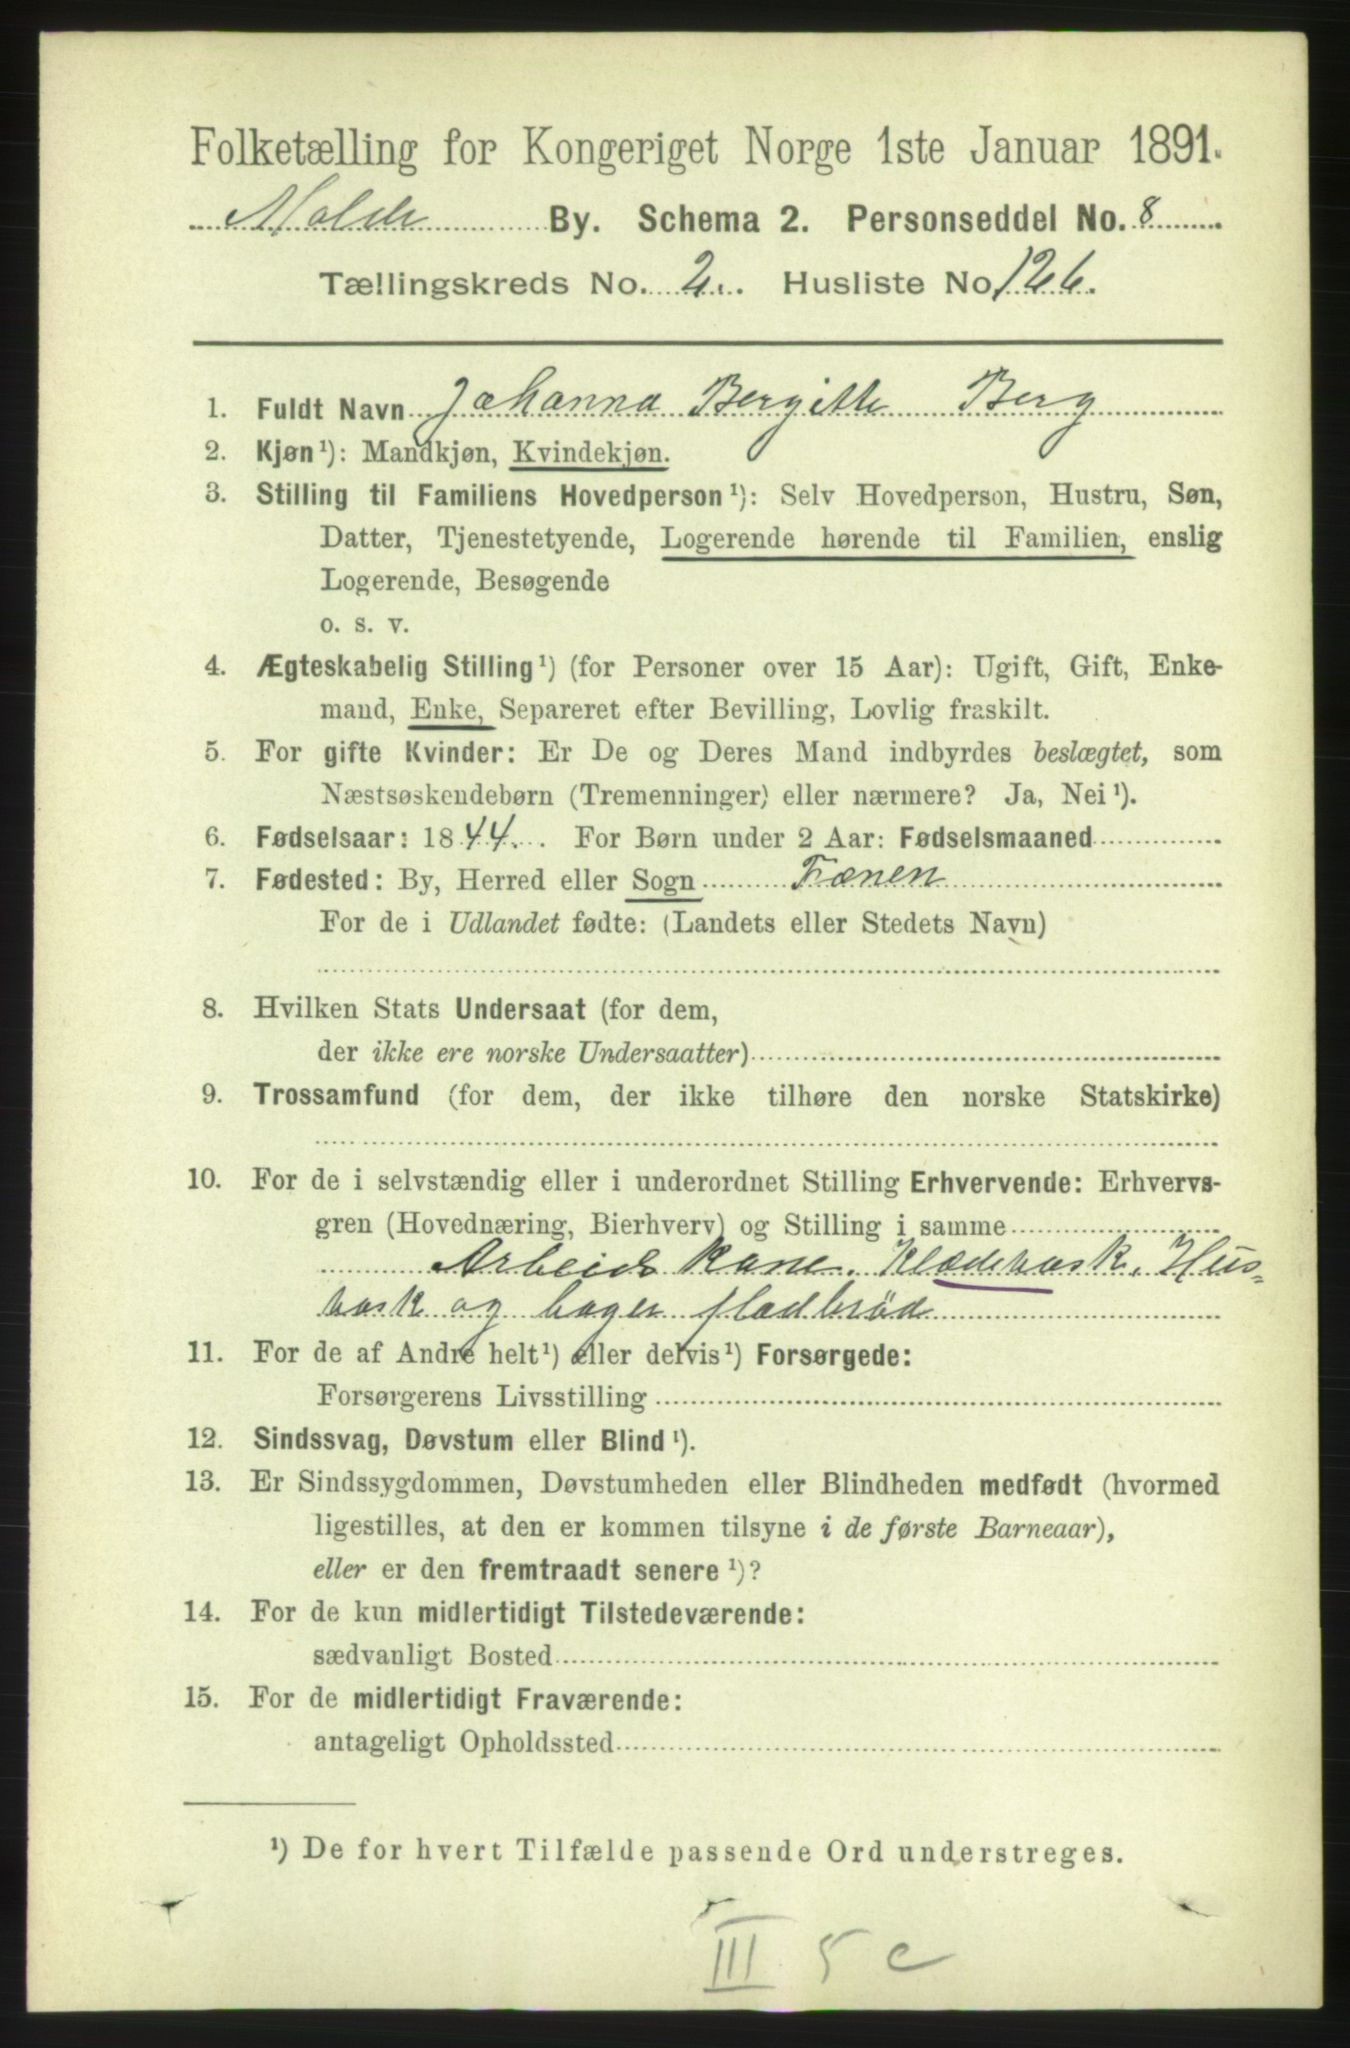 Folketælling for Kongeriget Norge 1ste Januar 1891.
Molde By. Schema 2. Personseddel No. 8
Tællingskreds No. 2. Husliste No 126.
1. Fuldt Navn Johanna Bergitte Berg
2. Kjøn ¹): Mandkjøn, Kvindekjøn.
3. Stilling til Familiens Hovedperson ¹): Selv Hovedperson, Hustru, Søn,
Datter, Tjenestetyende, Logerende hørende til Familien, enslig
Logerende, Besøgende
o. s. v.
4. Ægteskabelig Stilling ¹) (for Personer over 15 Aar): Ugift, Gift, Enke-
mand, Enke, Separeret efter Bevilling, Lovlig fraskilt.
5. For gifte Kvinder: Er De og Deres Mand indbyrdes beslægtet, som
Næstsøskendebørn (Tremenninger) eller nærmere? Ja, Nei ¹).
6. Fødselsaar: 1844. For Børn under 2 Aar: Fødselsmaaned
7. Fødested: By, Herred eller Sogn Fænen
For de i Udlandet fødte: (Landets eller Stedets Navn)
8. Hvilken Stats Undersaat (for dem,
der ikke ere norske Undersaatter)
9. Trossamfund (for dem, der ikke tilhøre den norske Statskirke)
10. For de i selvstændig eller i underordnet Stilling Erhvervende: Erhvervs-
gren (Hovednæring, Bierhverv) og Stilling i samme
Arbeids kone. Klædevask, Hus-
vask og bager fladbrød
11. For de af Andre helt ¹) eller delvis ¹) Forsørgede:
Forsørgerens Livsstilling
12. Sindssvag, Døvstum eller Blind ¹).
13. Er Sindssygdommen, Døvstumheden eller Blindheden medfødt (hvormed
ligestilles, at den er kommen tilsyne i de første Barneaar),
eller er den fremtraadt senere ¹)?
14. For de kun midlertidigt Tilstedeværende:
sædvanligt Bosted
15. For de midlertidigt Fraværende:
antageligt Opholdssted
¹) De for hvert Tilfælde passende Ord understreges.
III 5 c